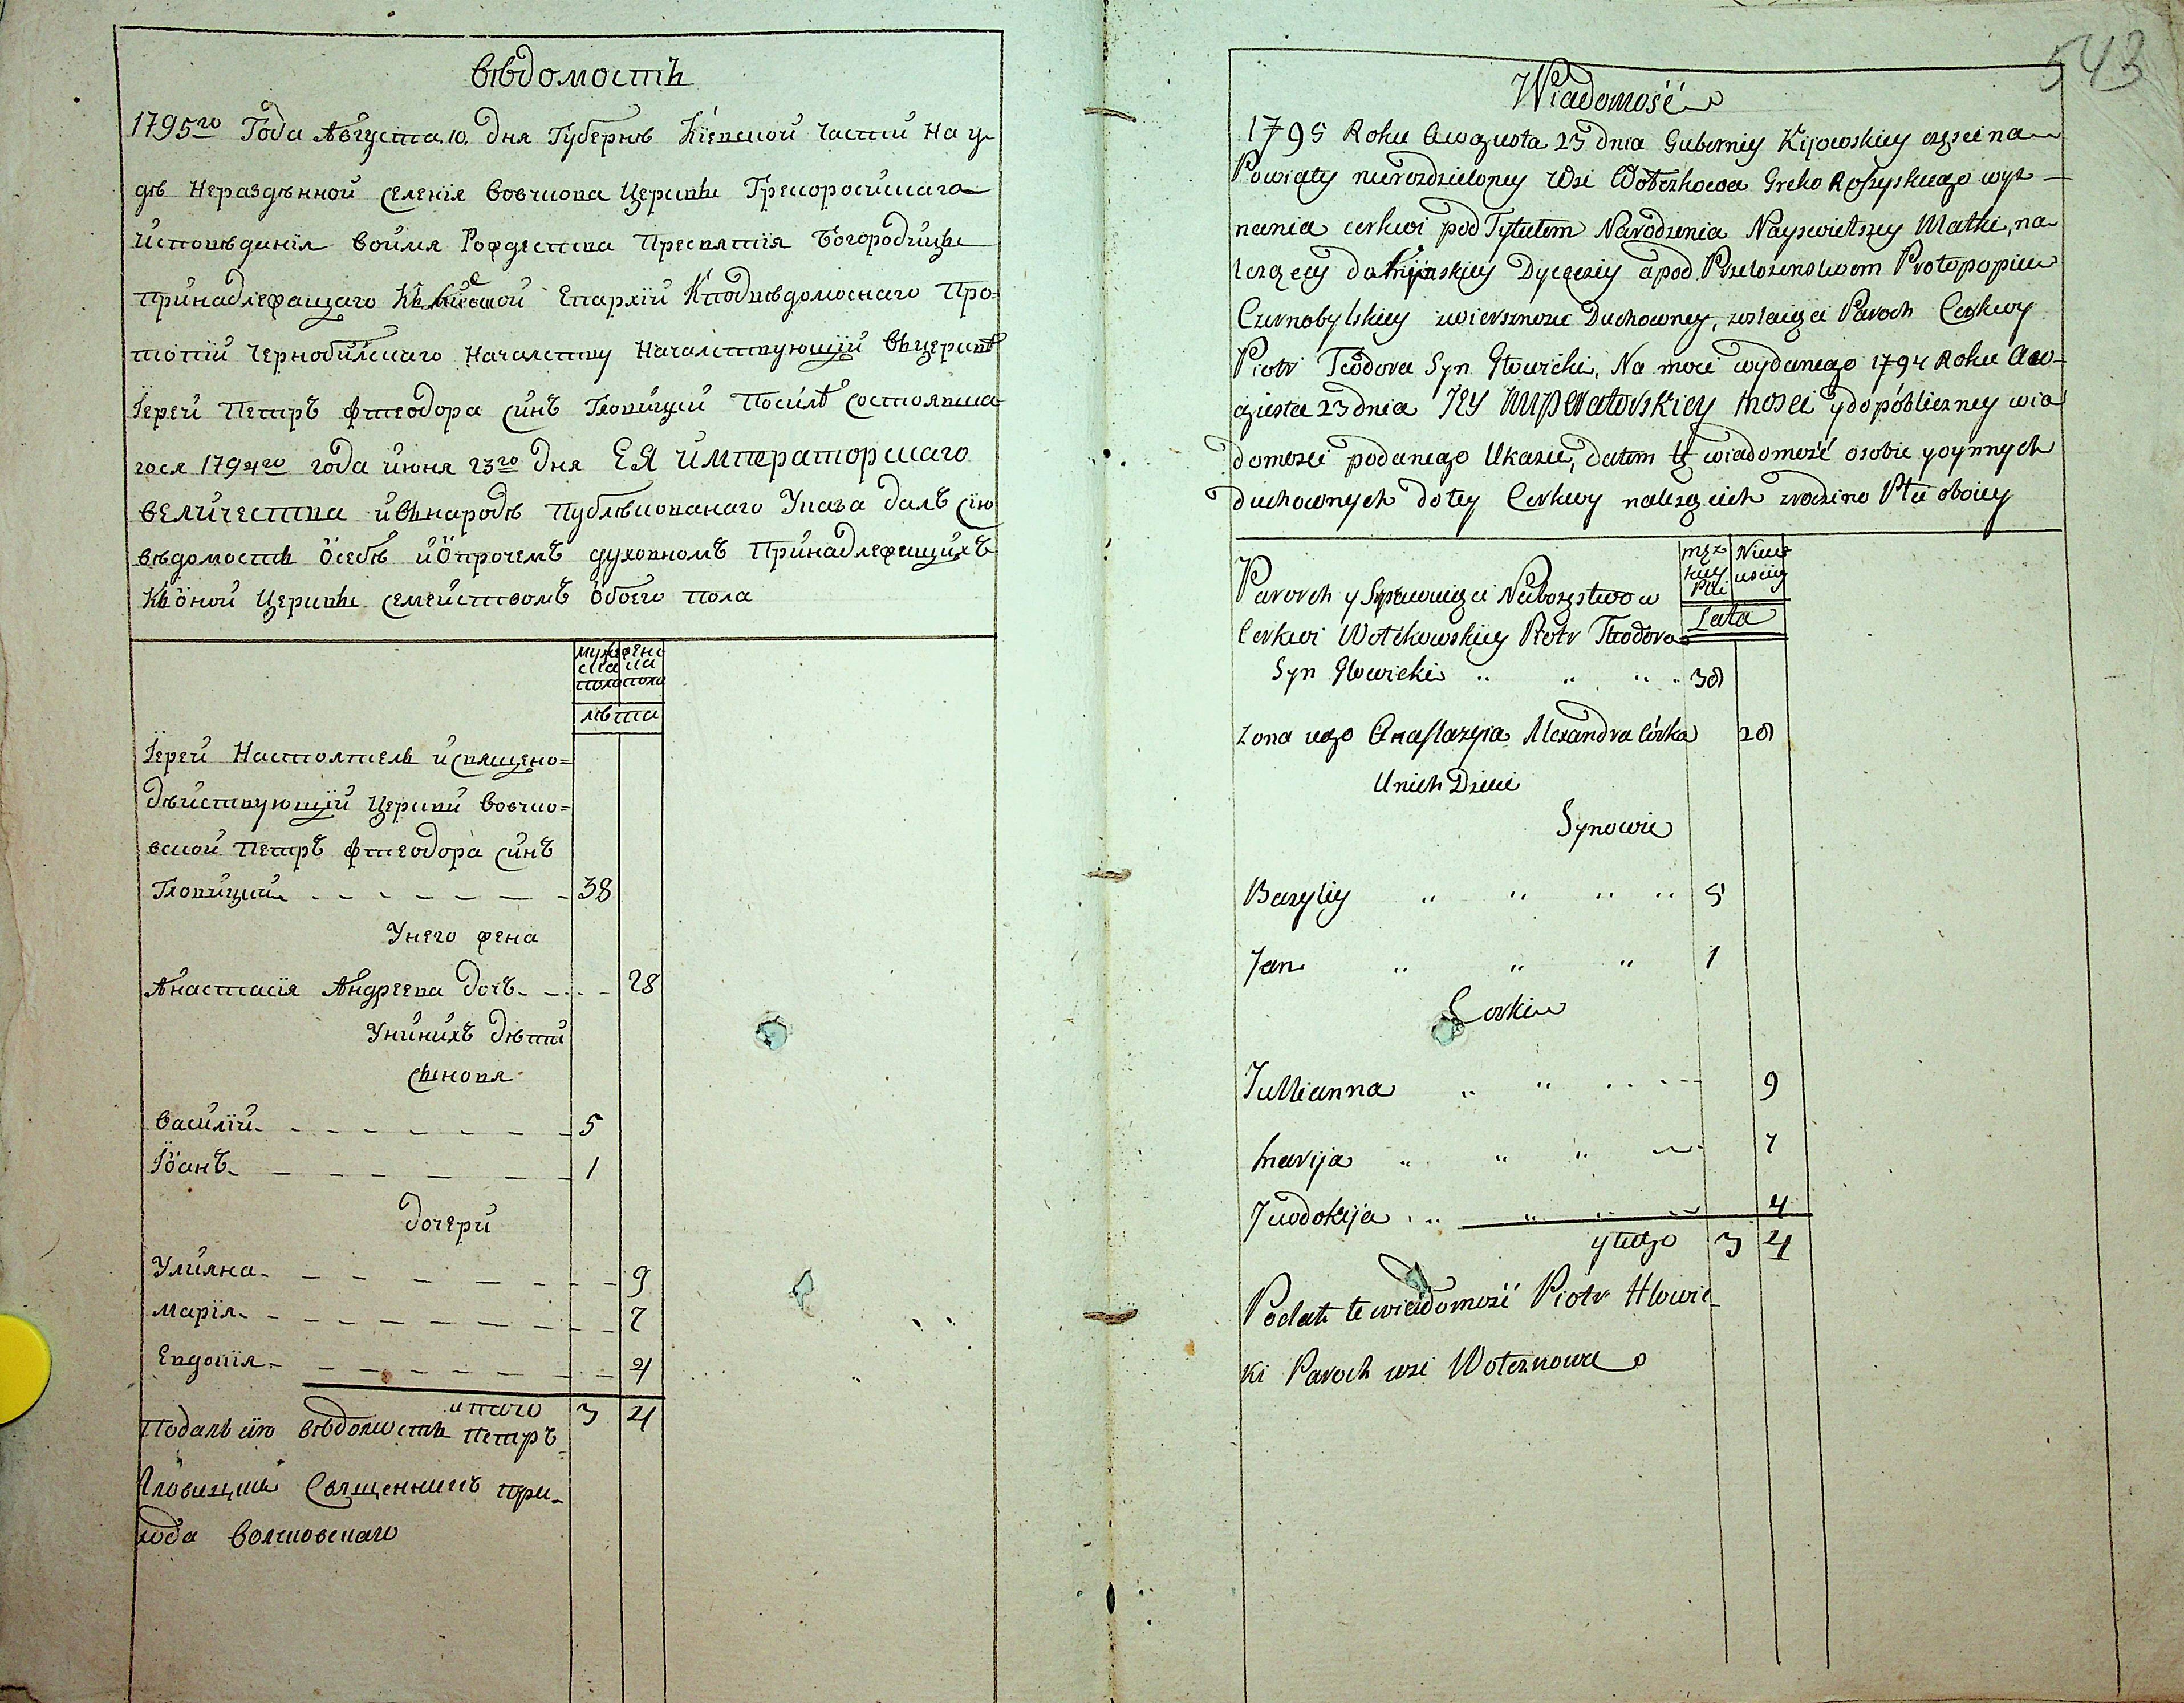 Вѣдомость
1795го Года Августа 10. Дня Губернѣ Кіевской Части На уе
дѣ Нераздѣнной Селенія Вовчкова Церквы Грекоросийскаго
Исповѣданія Воимя Рождества Пресвятія Богородицы
Принадлежащаго Къ Кіевской Епархіи Кподвѣдомоснаго Про=
топіи Чернобилскаго Началству Началствующій Въцерквѣ
Іерей Петръ Фтеодора Синъ Гловицкий Посилѣ Состоявша
гося 1794го года июня 23го Дня ЕЯ Императорскаго
Величества иВънародѣ Публѣкованаго Указа Далъ Сію
вѣдомость Осебѣ иОпрочемъ духовномъ Принадлежащихъ
Къоной Церквы Семействомъ Обоего пола
муж ска пола
жено ка пола
лѣта
Іерей Настоятель иСвящено=
Дѣйствующій Церкви Вовчко=
вской Петръ Фтеодора Синъ
Гловицкий 38
Унего жена
Анастасія Андреева Дочъ 28
Унинихъ Дѣти
Сыновя
Василій 5
Іоанъ 1
Дочери
Улияна 9
Марія 7
Евдокія 4
итого 3 4
Подалъ сію вѣдомость Петръ
Гловицкий Священникъ при-
хода Волчковскаго
543
Wiadomość
1795 Roku Awgusta 23 dnia Guberniy Kijowskiey częsci na
Powiaty nierozdzieloney Wsi Wołczkowa Greko Rossyskiego wyz
nania cerkwi pod Tytułem Narodzenia Nayswietszey Matki, na
lezącey do Kijowskiey Dyeceziy a pod Przełozenstwom Protopopiie
Czernobylskiey zwierznosci Duchowney, zostaiący Paroch Cerkwy
Piotr Teodora Syn Głowicki, Na moci wydanego 1794 Roku Aw-
gusta 23 dnia JEY IMPeratorskiey Mosci y do publiczney wia
domosci podanego Ukazu, datem tę wiadomość o sobie y o ynnych
duchownych do tey Cerkwy nalezącich z rodzino Płci oboiey
męz kiey Płci
Niewiesciey
Lata
Paroch y Sprawuiąci Nabozęstwo w
Cerkwi Wołckowskiey Piotr Teodora
Syn Głowicki 38
Zona iego Anastazyia Alexandra Córka 28
U nich Dzieci
Synowie
Bazyliy 5
Jan 1
Corki
Jullianna 9
Marija 7
Jewdokija 4
y tego 3 4
Podał te wiadomość Piótr Hłowic
ki Paroch wsi Wołczkowa